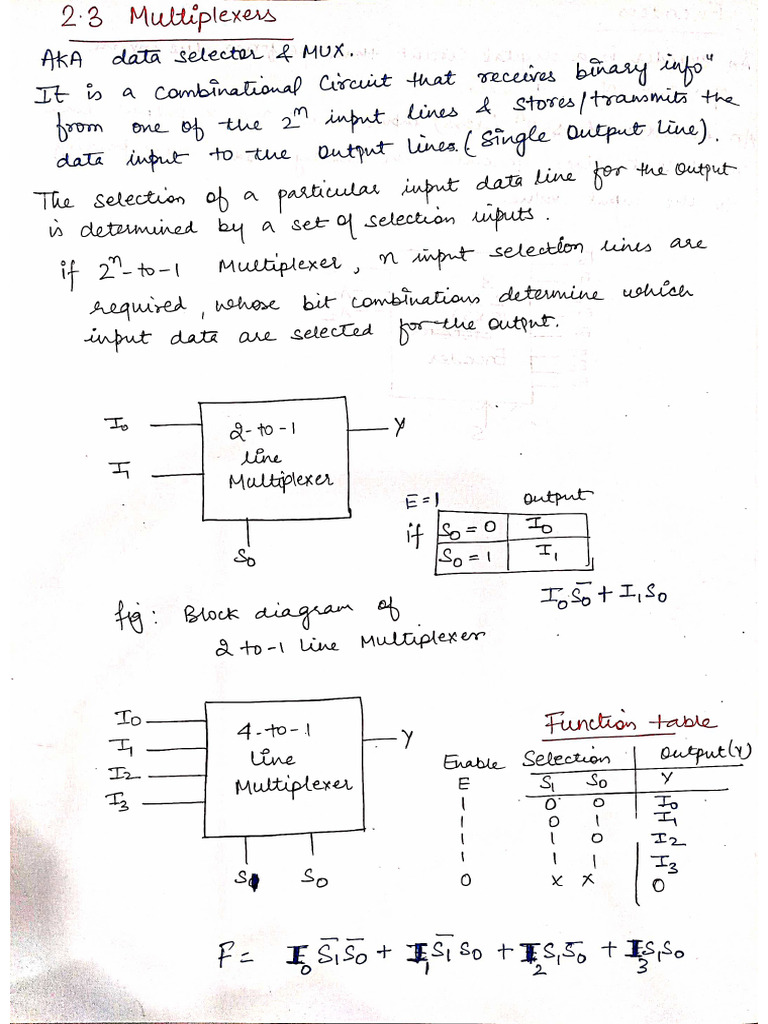 2.3 Multiplexers
AKA data selector & MUX.
It is a combinational Circuit that receives binary infoⁿ
from one of the 2ⁿ input lines & stores/transmits the
data input to the output lines. (Single Output line).
The selection of a particular input data line for the output
is determined by a set of selection inputs.
if 2ⁿ-to-1 Multiplexer, n input selection lines are
required, whose bit combinations determine which
input data are selected for the output.
I₀ 2-to-1 Y
line
I₁ Multiplexer
S₀
E=1 Output
if S₀=0 I₀
S₀=1 I₁
I₀S̅₀ + I₁S₀
fig: Block diagram of
2 to-1 line Multiplexer
I₀ 4-to-1 Y
I₁ line
I₂ Multiplexer
I₃
S₀
Function table
Enable Selection Output(Y)
E S₁ S₀ Y
1 0 0 I₀
1 0 1 I₁
1 1 0 I₂
1 1 1 I₃
0 X X 0
F = I₀S̅₁S̅₀ + I₁S̅₁S₀ + I₂S₁S̅₀ + I₃S₁S₀